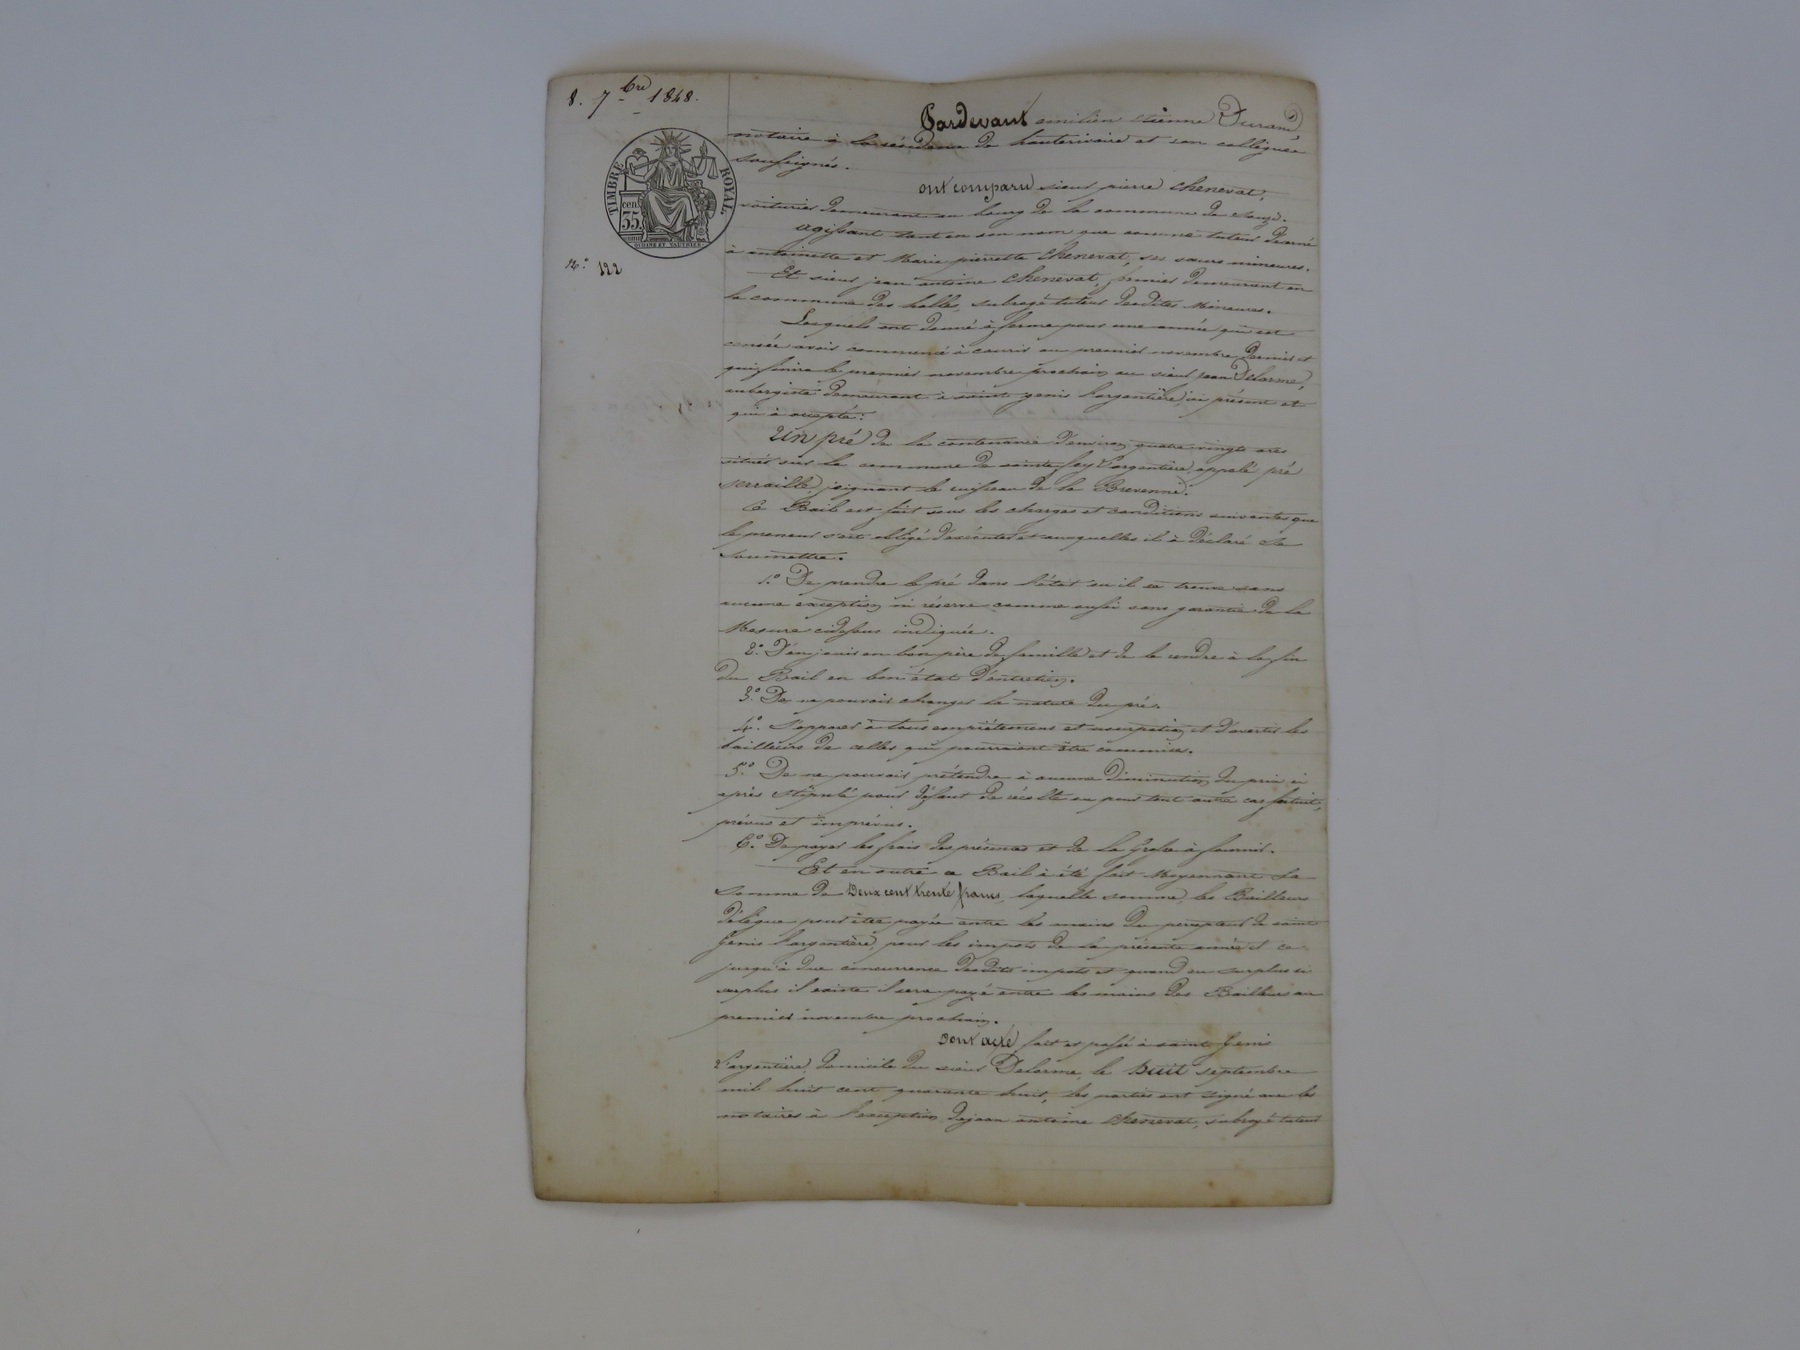 8. 7bre 1848.
TIMBRE ROYAL
cen. 35
N.º 122
Pardevant emilien etienne Durand,
notaire à la résidence de hauterivoire et son collègue
soussignés.
ont comparu sieur pierre Chenevat,
voiturier demeurant au bourg de la commune de Souzy.
agissant tant en son nom que comme tuteur
à antoinette et Marie pierrette Chenevat, ses sœurs mineures.
Et sieur jean antoine Chenevat, fermier demeurant en
la commune des halles, subrogé tuteur desdites Mineures.
Lesquels ont donné à ferme pour une année qui est
censée avoir commencé à courir au premier novembre dernier et
qui finira le premier novembre prochain au sieur jean Delorme,
aubergiste demeurant à saint genis l'argentière, ici présent et
qui à accepté:
Un pré de la contenance d'environ quatre vingts ares
situés sur la commune de sainte foy L'argentière, appelé pré
serraille, joignant le ruisseau de la Brevenne.
Ce Bail est fait sous les charges et conditions suivantes que
le preneur s'est obligé d'exécuter et auxquelles il à déclaré se
soumettre.
1.º De prendre le pré dans l'état ou il se trouve sans
aucune exception ni réserve comme aussi sans garantie de la
Mesure cidessus indiquée.
2.º D'en jouir en bon père de famille et de le rendre à la fin
du Bail en bon état d'entretien.
3.º De ne pouvoir changer la nature du pré.
4.º S'opposer à tous empiètemens et usurpation et d'avertir les
bailleurs de celles qui pourraient être commises.
5.º De ne pouvoir prétendre à aucune diminution du prix ci
après stipulé pour défaut de récolte ou pour tout autre cas fortuit,
prévus et imprévus.
6.º De payer les frais des présentes et de la Grosse à fournir.
Et en outre ce Bail à été fait Moyennant la
somme de Deux cent trente francs, laquelle somme, les Bailleurs
délègue pour être payée entre les mains du percepteur de saint
Genis l'argentière, pour les impots de la présente année et ce
jusqu'à due concurrence desdits impots et quand au surplus si
surplus il existe il sera payé entre les mains des Bailleurs au
premier novembre prochain.
Dont acte, fait et passé à saint Genis
L'argentière, domicile du sieur Delorme, le Huit septembre
mil huit cent quarante huit, les parties ont signé avec les
notaires à l'exception de jean antoine Chenevat, subrogé tuteur